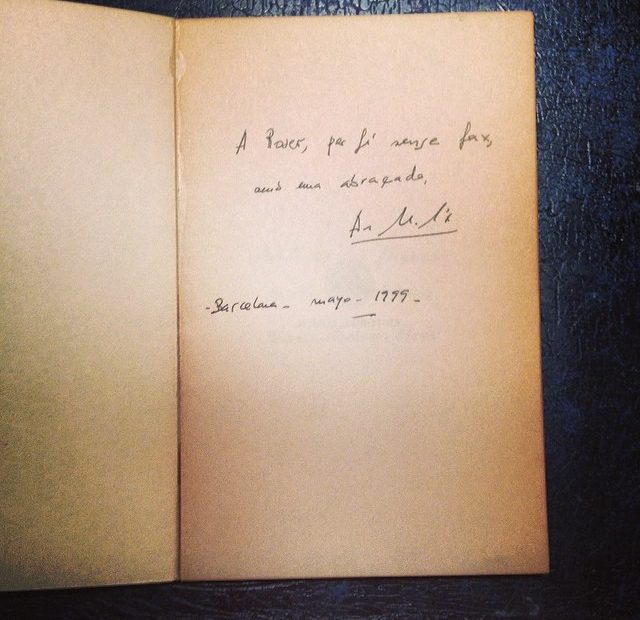 A Roser, per fi sense fax,
amb una abraçada,
- Barcelona - mayo - 1999 -